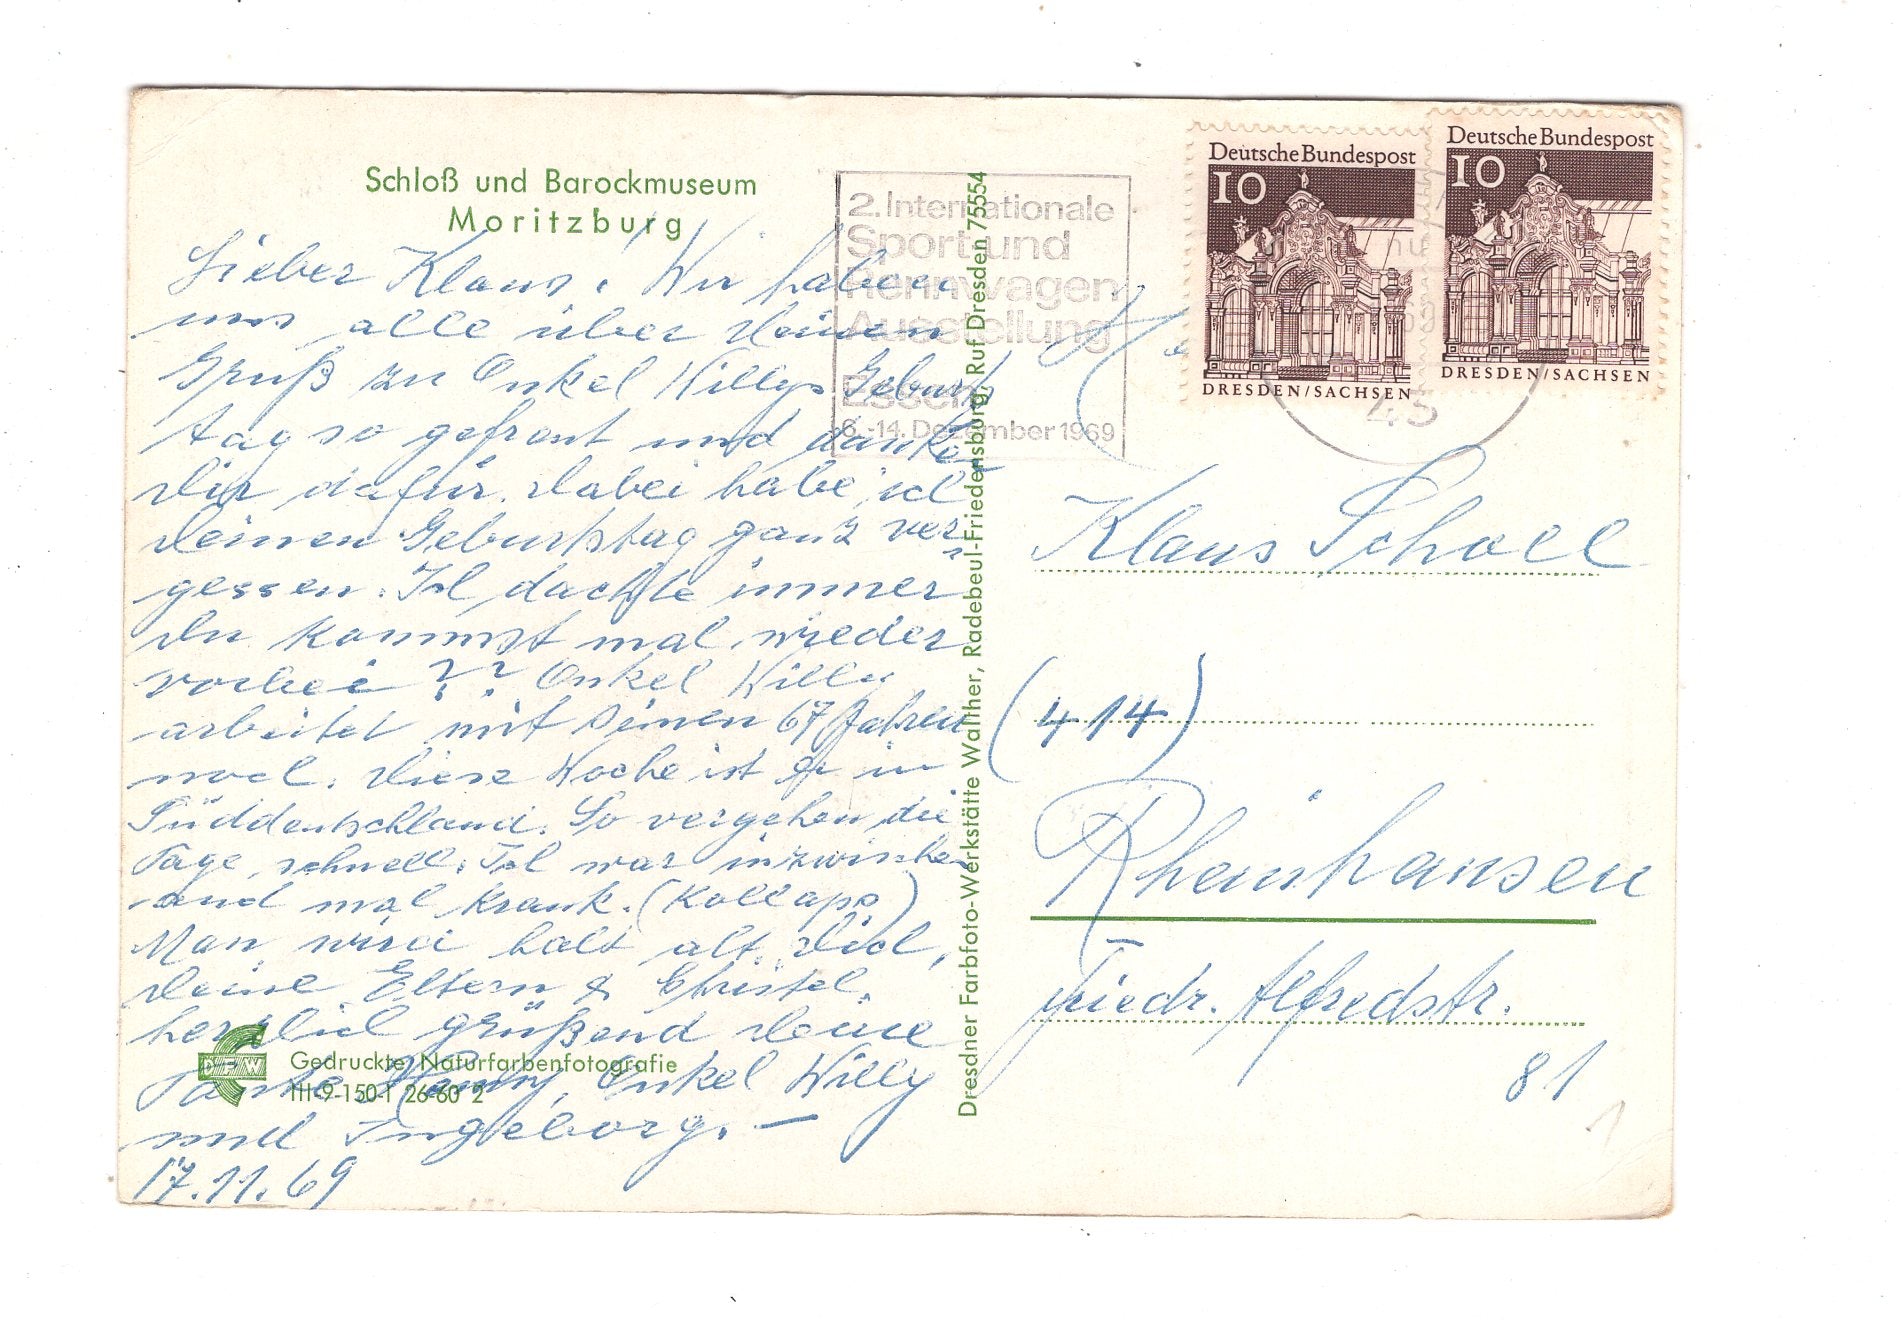 Schloß und Barockmuseum
Moritzburg
Lieber Klaus! Wir haben
uns alle über Deinen
Gruß zu Onkel Willys Geburts
tag so gefreut und danken
Dir dafür. Dabei habe ich
Deinen Geburtstag ganz ver-
gessen. Ich dachte immer
Du kommst mal wieder
vorbei?? Onkel Willy
arbeitet mit seinen 67 Jahren
noch. Diese Woche ist er in
Süddeutschland. So vergehen die
Tage schnell. Ich war inzwischen
auch mal krank. (Kollaps)
Man wird halt alt. Dich,
Deine Eltern & Christel,
herzlich grüßend Deine
Tante Hanny, Onkel Willy
und Ingeborg. —
17.11.69
Gedruckte Naturfarbenfotografie
III-9-150-1 26-60 2
DFW
Dresdner Farbfoto-Werkstätte Walther, Radebeul-Friedensburg, Ruf Dresden 75554
2. Internationale
Sport und
Rennwagen
Ausstellung
Essen
6.-14. Dezember 1969
Deutsche Bundespost
10
DRESDEN/SACHSEN
Deutsche Bundespost
10
DRESDEN/SACHSEN
43
Klaus Scholl
(414)
Rheinhausen
Friedr. Alfredstr.
81